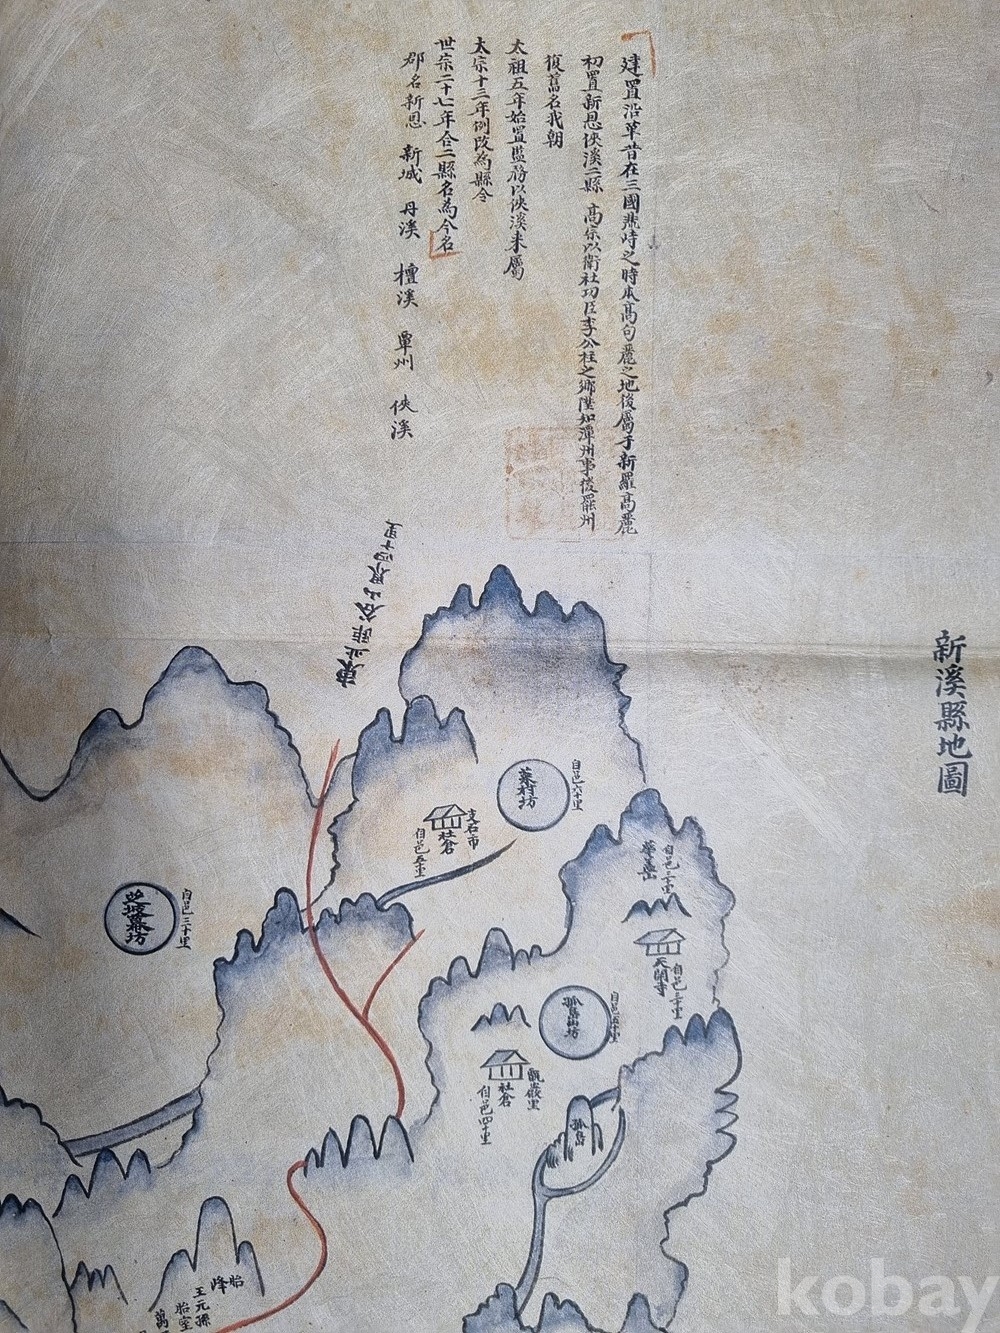 新溪縣地圖
建置沿革昔在三國鼎峙之時本高句麗之地後屬于新羅高麗
初置新恩俠溪二縣 高宗以衛社功臣李公柱之鄉陞知潭州事後罷州
復舊名我朝
太祖五年始置監務以俠溪来屬
太宗十三年例改為縣令
世宗二十七年合二縣名為今名
郡名新恩 新城 丹溪 檀溪 覃州 俠溪
東北距谷山界四十里
自邑六十里
葉村坊
支石市
社倉
自邑五十里
自邑三十里
自邑三十里
華盖山
天開寺
自邑三十里
自邑五十里
孤島山坊
甑岩里
社倉
自邑四十里
孤島
胎峰
王元孫
胎室
萬
kobay